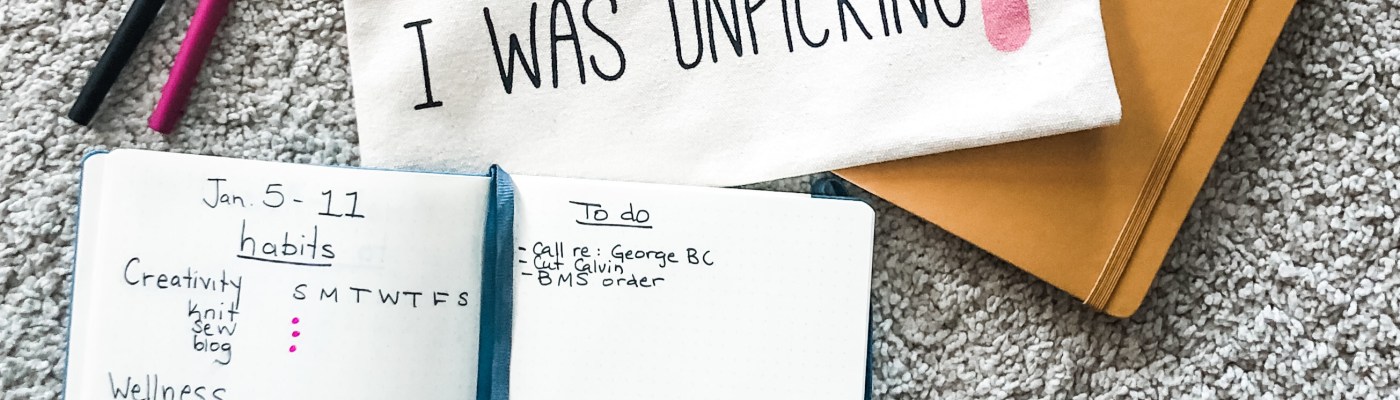 I WAS UNPICKING
Jan. 5 - 11
habits
Creativity
S M T W T F S
knit
sew
blog
Wellness
To do
- Call re: George BC
- Cut Calvin
- BMS order